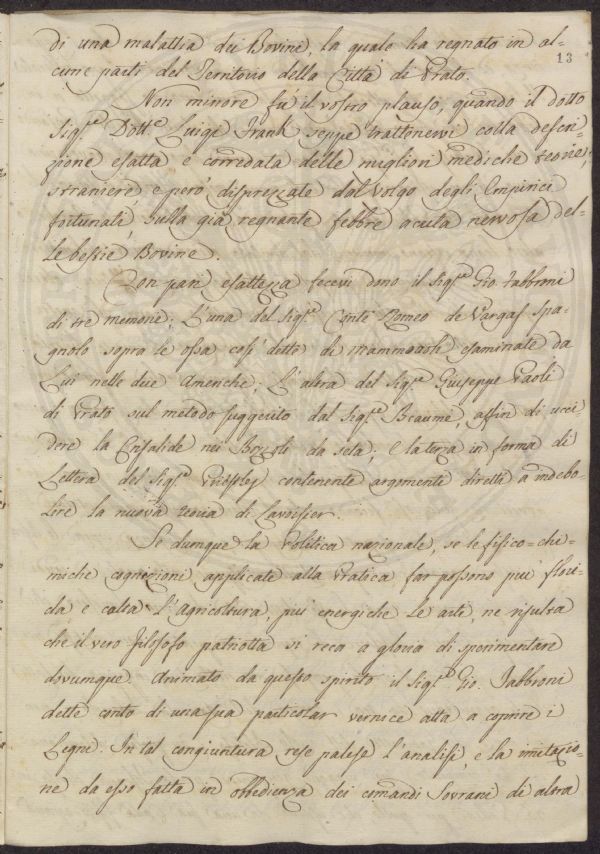 di una malattia dei Bovini, la quale ha regnato in al=
13
cune parti del Territorio della Città di Prato.
Non minore fu il vostro plauso, quando il dotto
Sig.re Dott.e Luigi Frank seppe trattenervi colla descri=
zione esatta e corredata delle migliori mediche teorie,
straniere, e però disprezzate dal volgo degli Empirici
fortunati, sulla già regnante febbre acuta nervosa del=
le bestie Bovine.
Con pari esattezza fecevi dono il Sig.re Gio. Fabbroni
di tre memorie; L'una del Sig.re Conte Romeo de Vargas Spa=
gnolo sopra le ossa così dette di mammouth esaminate da
Lui nelle due Americhe; L'altra del Sig.re Giuseppe Paoli
di Prato sul metodo suggerito dal Sig.re Beaumé, affin di ucci
dere la Crisalide nei Bozzoli da seta; e la terza in forma di
Lettera del Sig.re Priestley contenente argomenti diretti a indebo=
lire la nuova teoria di Lavoisier.
Se dumque la Politica nazionale, se le fisico=chi=
miche cognizioni applicate alla Pratica far possono più flori=
da, e colta l'Agricoltura, più energiche le arti, ne risulta
che il vero filosofo patriotta si reca a gloria di sperimentare
dovumque. Animato da questo spirito il Sig.re Gio. Fabbroni
dette conto di una sua particolar vernice atta a coprire i
Legni. In tal congiuntura rese palese l'analisi, e la imitazio=
ne da esso fatta in obbedienza dei comandi Sovrani di altra